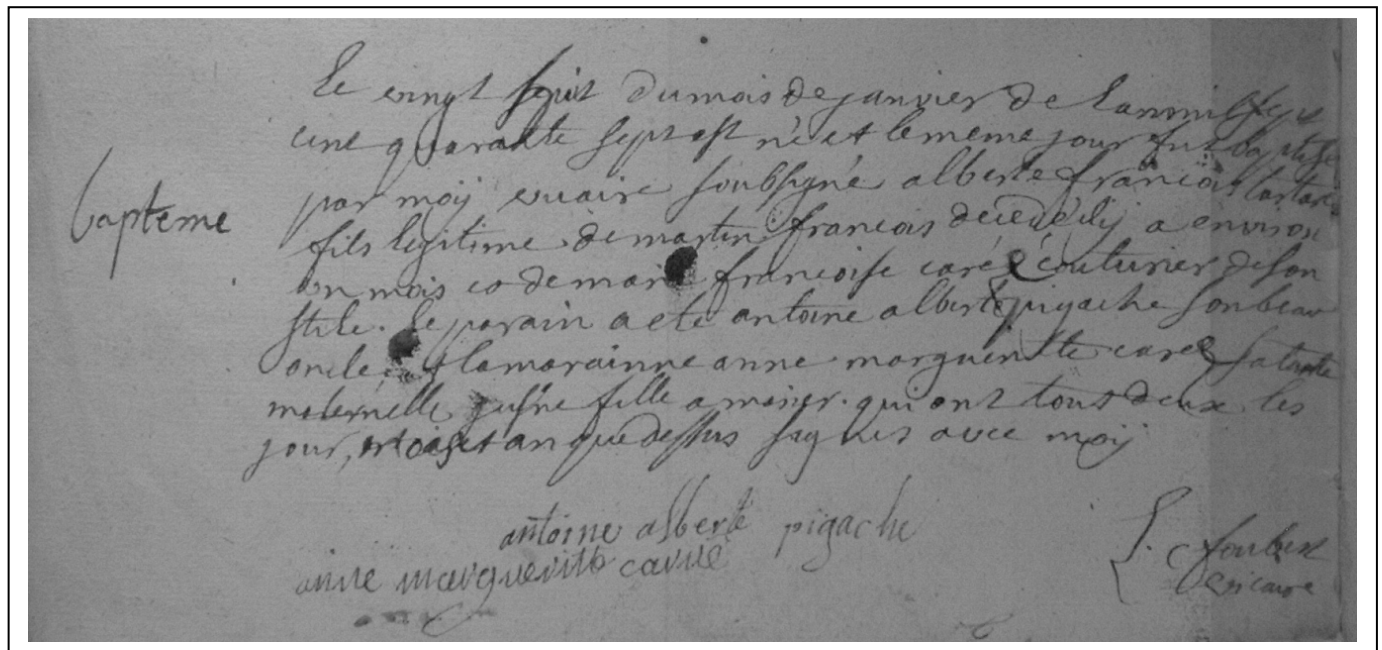 Le vingt huit du mois de janvier de l'an mil sept
cent quarante sept est né et le meme jour fut baptisé
bapteme
par moy vicaire soubsigné alberte françois tartare
fils legitime de martin francois decedé il y a environ
un mois et de marie francoise caré couturier de son
stile. le parain a eté antoine alberte pigache son beau
oncle et la marainne anne margueritte caré sa tante
maternelle jeusne fille a marier. qui ont tous deux les
jour, mois et an que dessus signés avec moy
antoine alberte pigache
anne marguerite carré
vicaire